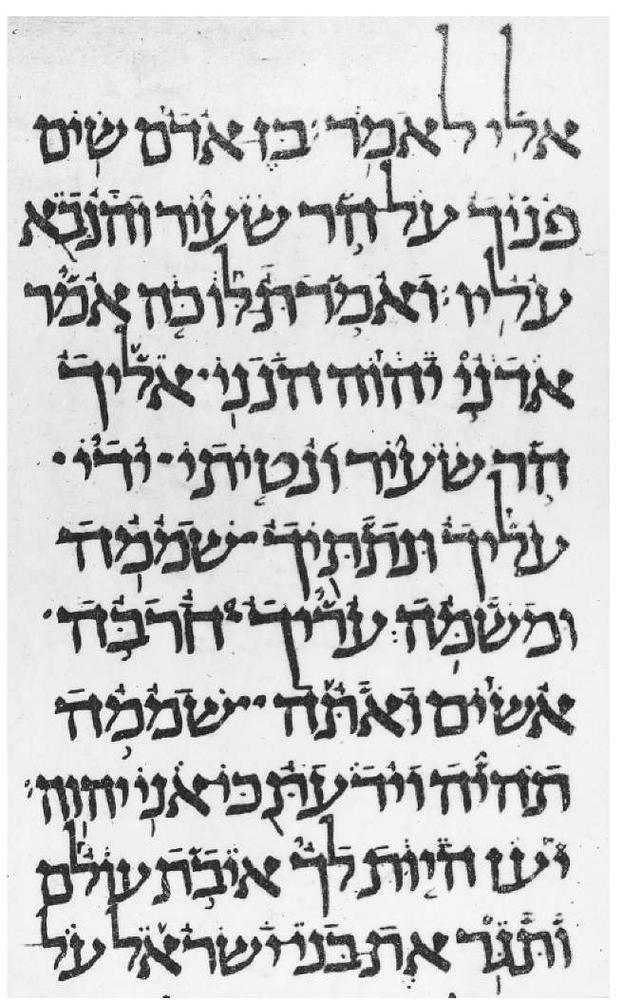 אלי לאמר : בן אדם שים
פניך על הר שעיר והנבא
עליו : ואמרת לו כה אמר
אדני יהוה הנני אליך
הר שעיר ונטיתי ידי
עליך ונתתיך שממה
ומשמה : עריך חרבה
אשים ואתה שממה
תהיה וידעת כי אני יהוה :
יען היות לך איבת עולם
ותגר את בני ישראל על